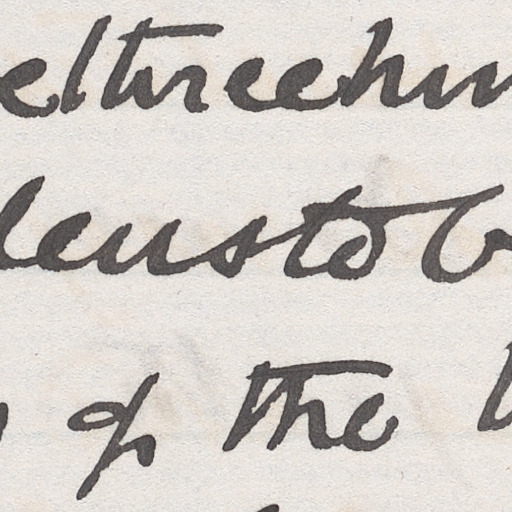 el three hun
lens to b
of the